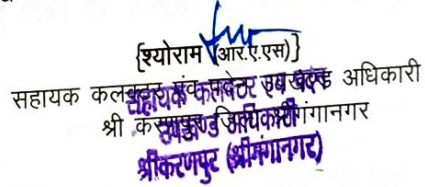 {श्योराम (आर.ए.एस)}
सहायक कलक्टर एवं पदेन उपखण्ड अधिकारी
श्री करणपुर जिला श्रीगंगानगर
सहायक कलेक्टर एवं
उपखण्ड अधिकारी
श्रीकरणपुर (श्रीगंगानगर)